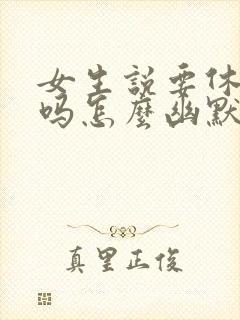 女生说要休
吗怎麼幽默
真里正俊